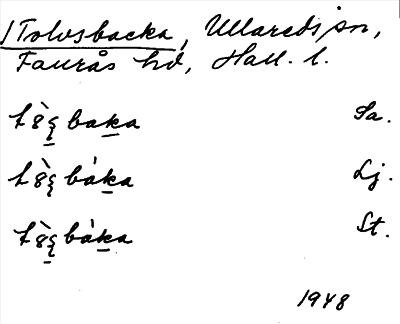 /Tolvsbacka, Ullareds sn,
Faurås hd, Hall. l.
baka Sa.
bàka Lj.
bàka St.
1948